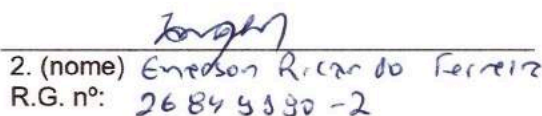 2. (nome) Emerson Ricardo Ferreira
R.G. nº: 26849990-2